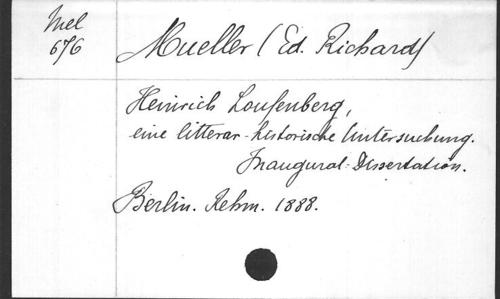 Mel
676
Mueller (Ed. Richard)
Heinrich Loufenberg,
eine litterar-historische Untersuchung.
Inaugural-Dissertation.
Berlin. Rehm. 1888.